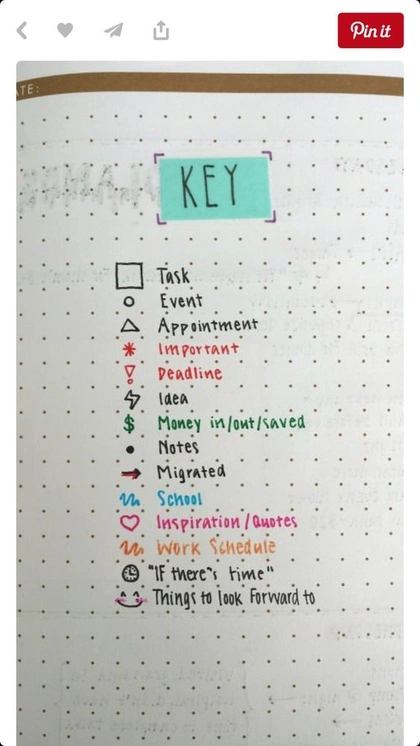 Pin it
ATE:
KEY
Task
Event
Appointment
Important
Deadline
Idea
$ Money in/out/saved
Notes
Migrated
School
Inspiration/Quotes
Work Schedule
"IF there's time"
Things to look Forward to